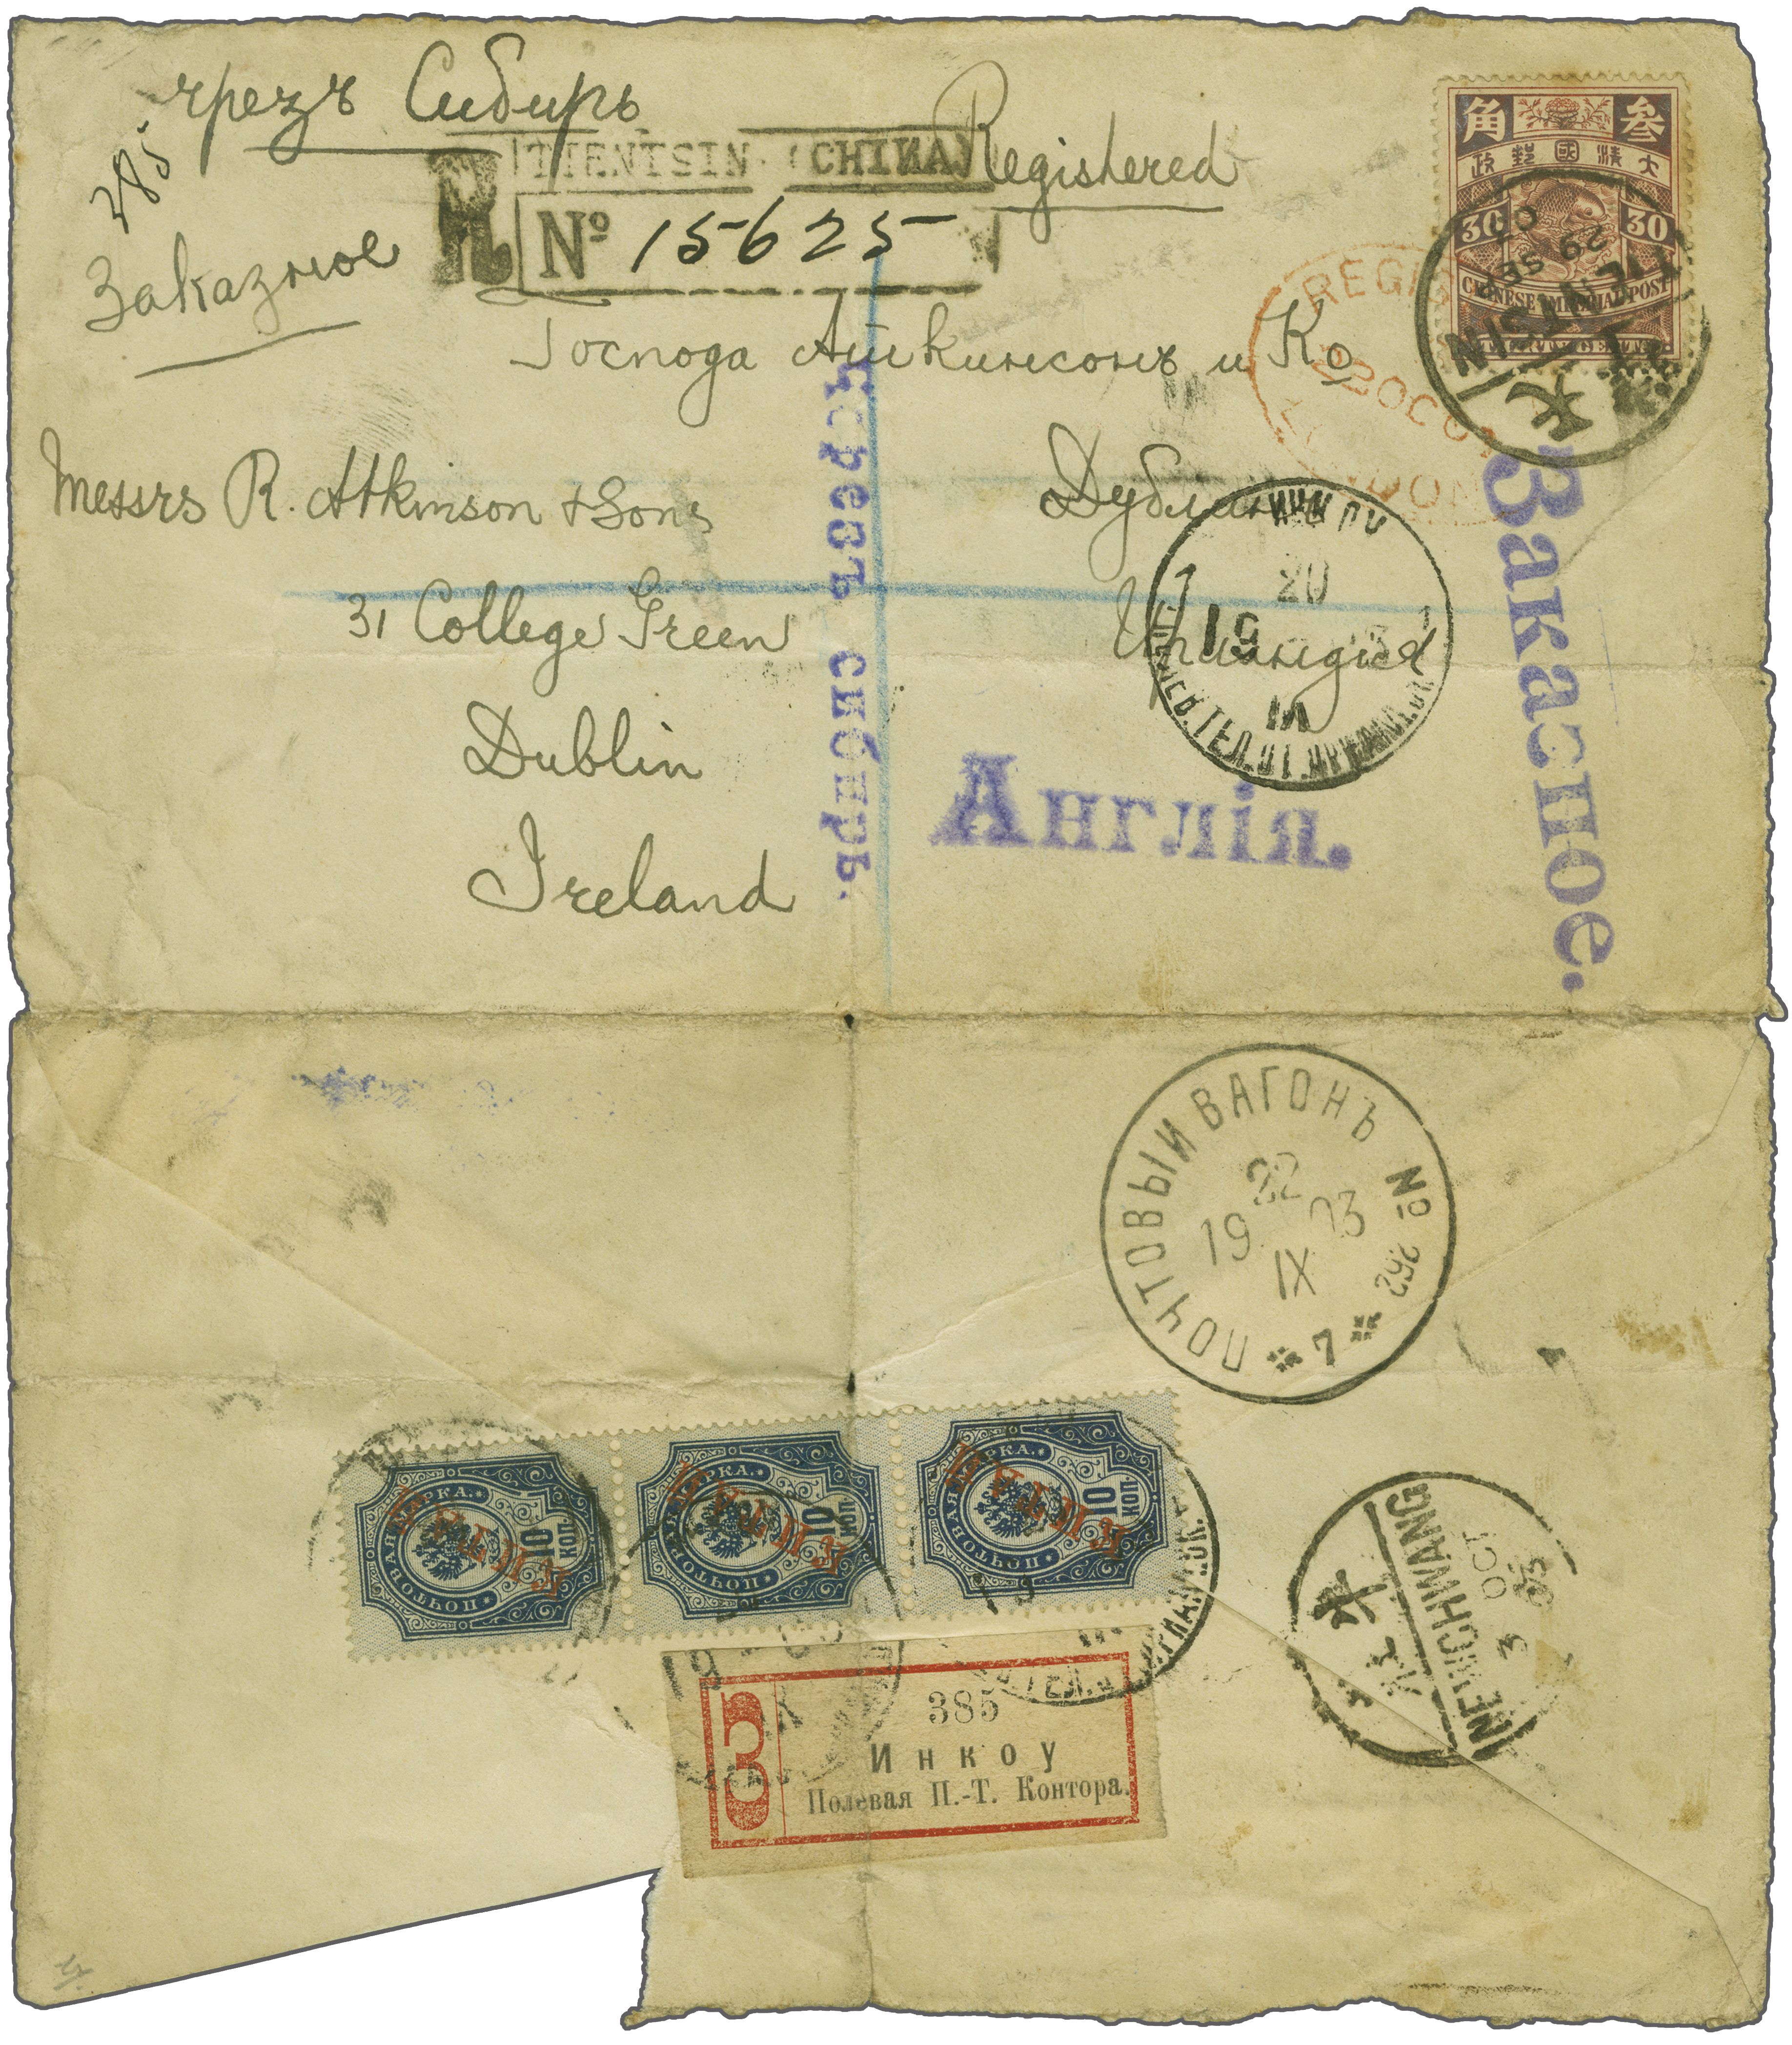 чрезъ Сибирь
Registered
Заказное
TIENTSIN (CHINA)
R Nº 15625
Господа Аткинсонъ и Ко
Messrs R. Atkinson & Sons
Дублинъ
31 College Green
Ирландия
Dublin
Ireland
Чрезъ сибирь.
Англія.
Заказное.
角 叁
政郵國清大
30 30
CHINESE IMPERIAL POST
29 SEP
TIENTSIN
天
REGIS
22 OC
LONDON
20
19
ПОЧТОВЫЙ ВАГОНЪ № 262
22
19 03
IX
* 7 *
ПОЧТОВАЯ МАРКА.
10 КОП.
КИТАЙ
ПОЧТОВАЯ МАРКА.
10 КОП.
КИТАЙ
ПОЧТОВАЯ МАРКА.
10 КОП.
КИТАЙ
NEWCHWANG
3 OCT 03
З
385
Инкоу
Полевая П.-Т. Контора.